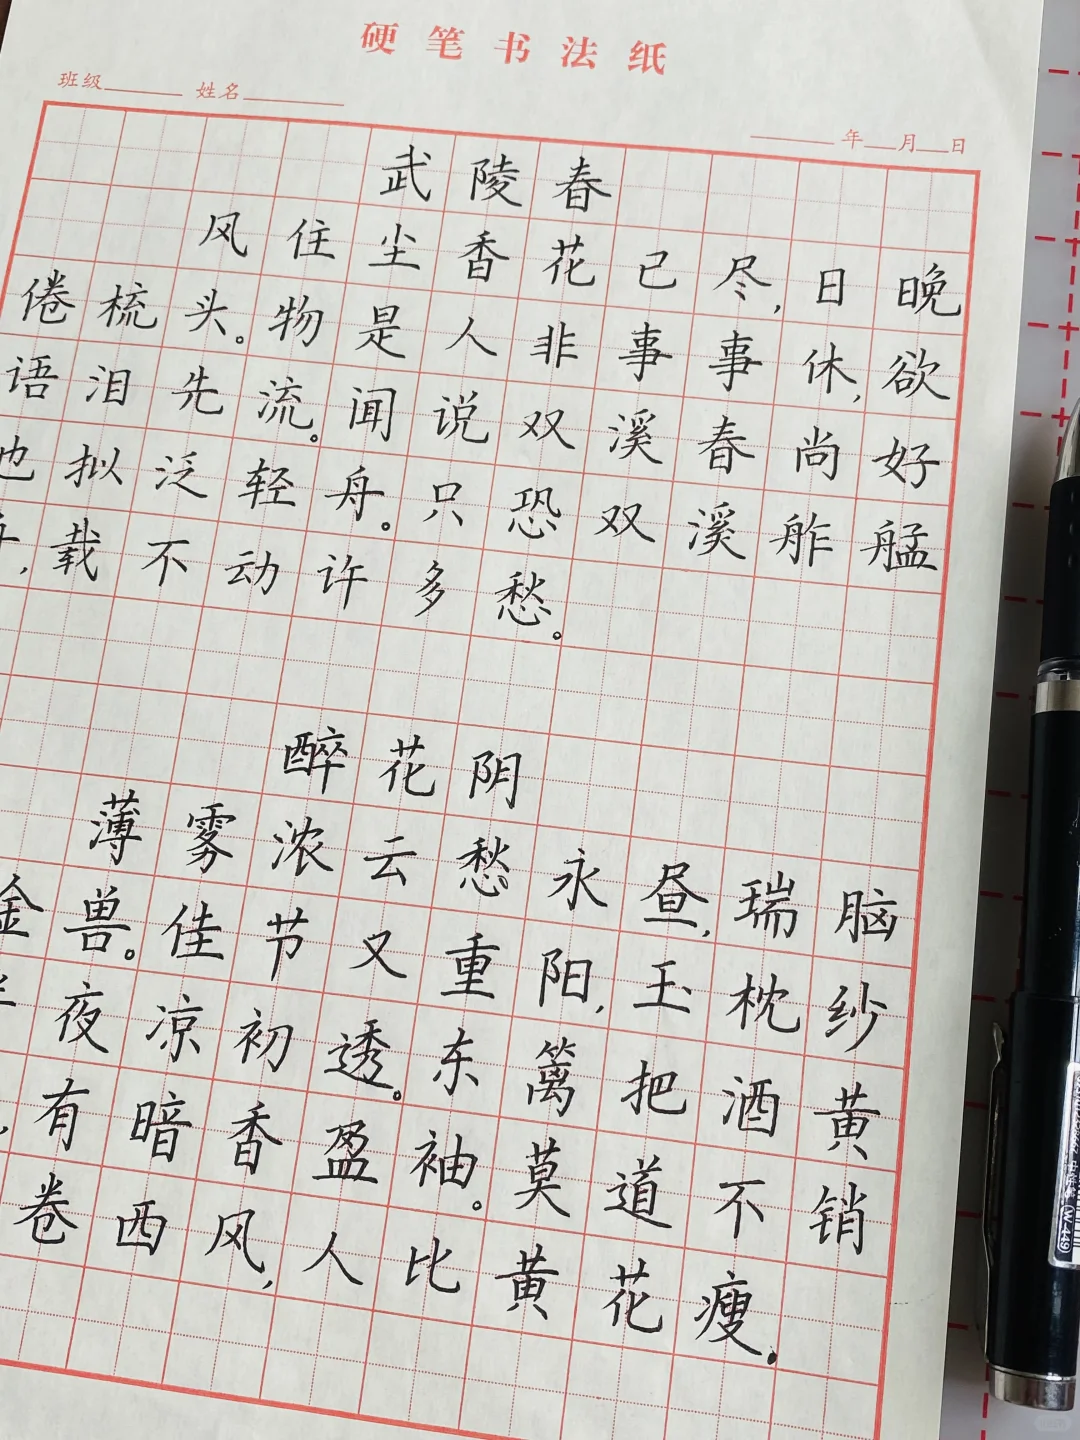 硬笔书法纸
班级 姓名
年 月 日
武陵春
风住尘香花已尽,日晚
倦梳头。物是人非事事休,欲
语泪先流。闻说双溪春尚好
也拟泛轻舟。只恐双溪舴艋
,载不动许多愁。
醉花阴
薄雾浓云愁永昼,瑞脑
金兽。佳节又重阳,玉枕纱
夜凉初透。东篱把酒黄
,有暗香盈袖。莫道不销
卷西风,人比黄花瘦.
W-449